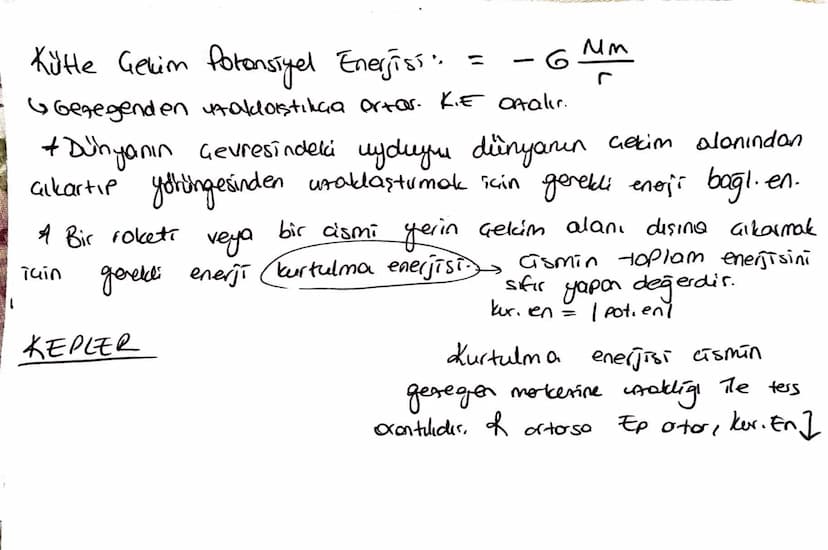 Kütle Çekim Potansiyel Enerjisi: = - G Mm/r
↳ Gezegenden uzaklaştıkça artar. K.E azalır.
* Dünyanın çevresindeki uyduyu dünyanın çekim alanından
çıkartıp yörüngesinden uzaklaştırmak için gerekli enerji bağl. en.
* Bir roketi veya bir cismi yerin çekim alanı dışına çıkarmak
için gerekli enerji kurtulma enerjisi. → Cismin toplam enerjisini
sıfır yapan değerdir.
kur. en = |pot. en|
KEPLER
Kurtulma enerjisi cismin
gezegen merkezine uzaklığı ile ters
orantılıdır. artarsa Ep artar, kur. En ↓